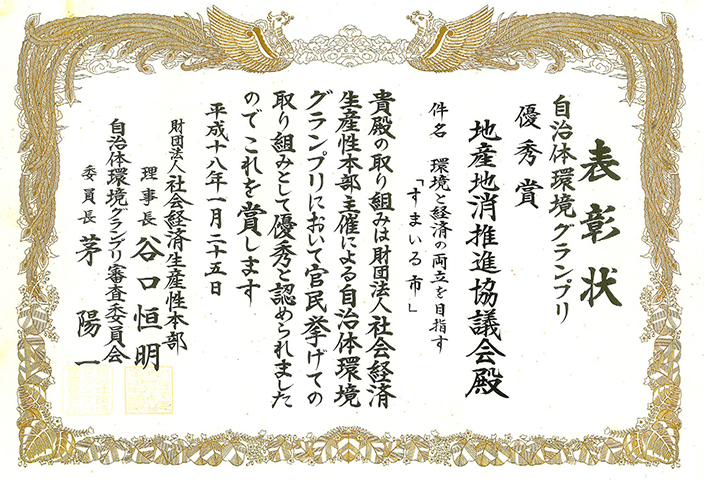 表彰状
自治体環境グランプリ
優秀賞
地産地消推進協議会殿
件名 環境と経済の両立を目指す
「すまいる市」
貴殿の取り組みは財団法人社会経済
生産性本部主催による自治体環境
グランプリにおいて官民挙げての
取り組みとして優秀と認められました
のでこれを賞します
平成十八年一月二十五日
財団法人社会経済生産性本部
理事長 谷口恒明
自治体環境グランプリ審査委員会
委員長 茅陽一